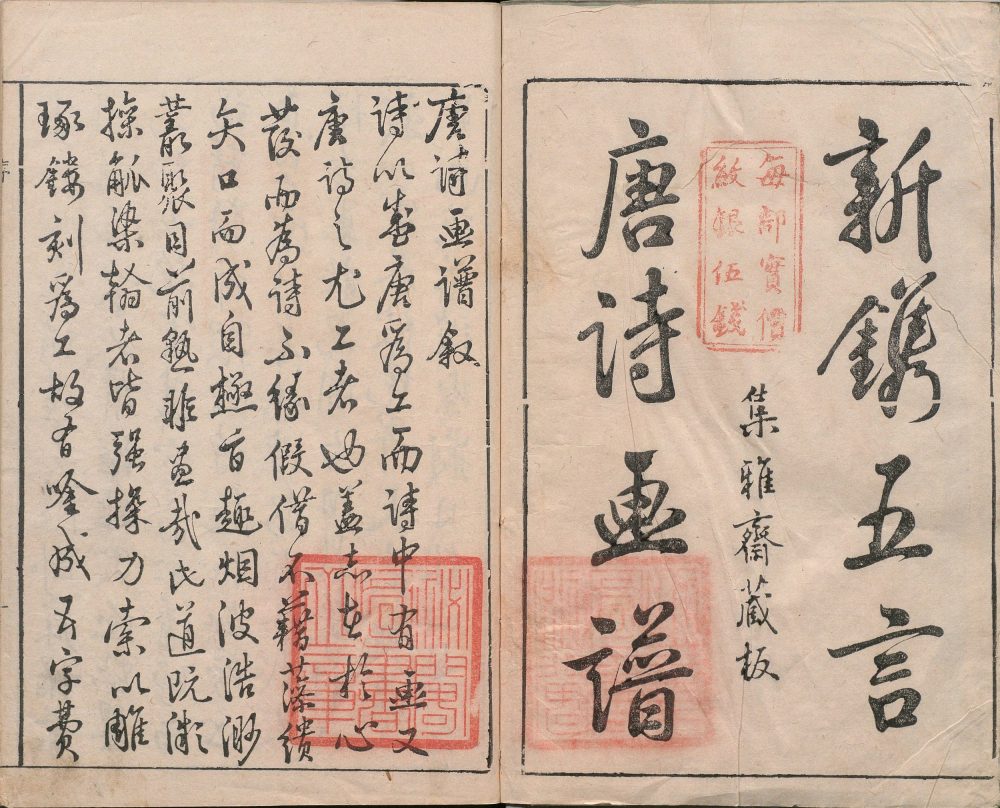 新鐫五言
每部實價
紋銀伍錢
集雅齋藏板
唐詩畫譜
唐詩畫譜敘
詩以盛唐爲工而詩中有畫又
唐詩之尤工者也蓋志在於心
發而為詩不緣假借不藉藻繢
矢口而成自極旨趣烟波浩渺
叢聚目前孰非畫哉此道既漸
操觚染翰者皆強操力索以雕
琢鏤刻爲工故有唫成五字費